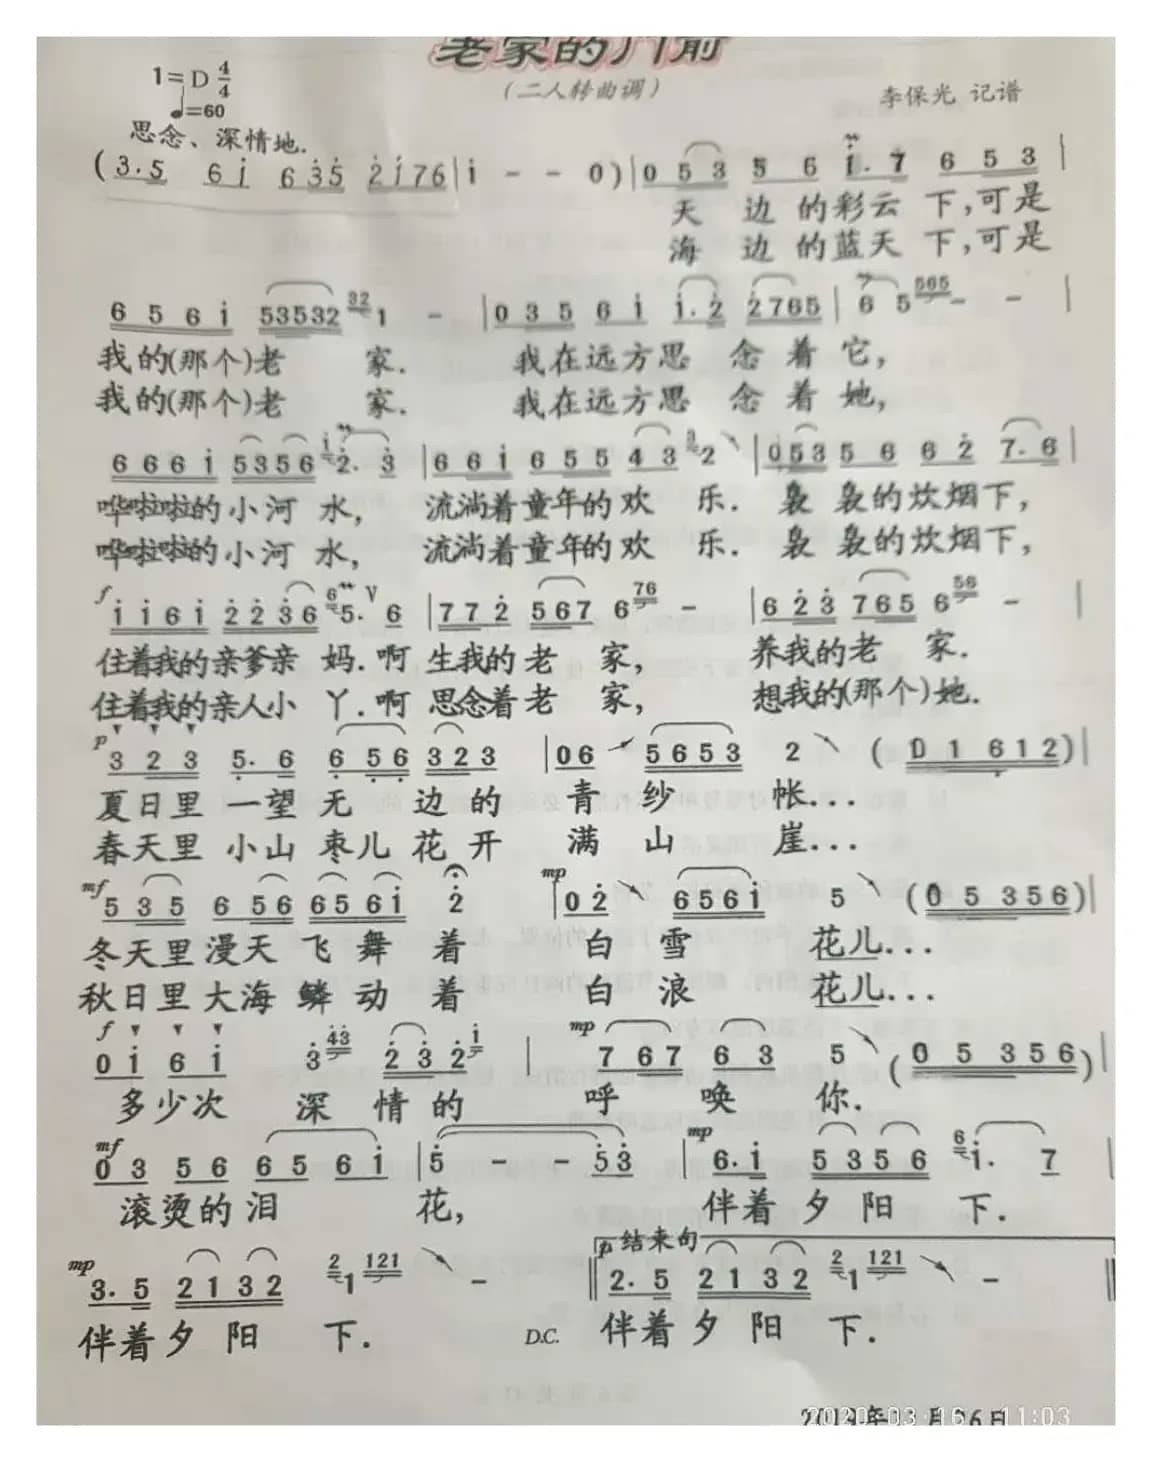 老家的门前
(二人转曲调)
1=D 4/4
♩=60
李保光 记谱
思念、深情地.
(3.5 6i 63̇5̇ 2̇i76|i - - 0)|0 53 5 6 i.7 6 53|
天 边 的彩云 下,可是
海 边 的蓝天 下,可是
6 5 6 i 53532 32 1 - |0 3 5 6 i i.2̇ 2̇765|6 5 565 - - |
我的(那个)老 家. 我在远方思 念 着 它,
我的(那个)老 家. 我在远方思 念 着 她,
6 6 6 i 5356 i 2̇. 3̇ |6 6 i 6 5 5 4 3 3 2 |0 53 5 6 6 2̇ 7.6|
哗啦啦的小河 水, 流淌着童年的欢 乐. 袅 袅的炊烟下,
哗啦啦的小河 水, 流淌着童年的欢 乐. 袅 袅的炊烟下,
f i i 6 i 2̇ 2̇ 3̇ 6 6 5. V 6 |7 7 2̇ 567 6 76 - |6 2̇ 3̇ 765 6 56 - |
住着我的亲爹亲 妈.啊 生我的老 家, 养我的老 家.
住着我的亲人小 丫.啊 思念着老 家, 想我的(那个)她.
p 3 2 3 5̣. 6̣ 6̣ 5̣6̣ 323 |06 5653 2 (0 1 6̣ 1 2)|
夏日里 一望 无 边 的 青 纱 帐...
春天里 小山 枣儿 花 开 满 山 崖...
mf 5 3 5 6 56 65 6i 2̇ |mp 0 2̇ 656i 5 (0 5 3 5 6)|
冬天里 漫天 飞 舞 着 白 雪 花儿...
秋日里 大海 鳞 动 着 白 浪 花儿...
f 0 i 6 i 3̇ 4̇3̇ 2̇ 3̇ 2̇ i |mp 7 67 6 3 5 (0 5 3 5 6)|
多少次 深 情 的 呼 唤 你.
mf 0 3 5 6 6 5 6 i |5̇ - - 5̇3̇ |mp 6.i 5 3 5 6 6 i. 7 |
滚烫的泪 花, 伴着夕 阳 下.
mp 3. 5 2 1 3 2 2 1 121 - ‖p 结束句 2. 5 2 1 3 2 2 1 121 - ‖
伴着夕 阳 下. D.C. 伴着夕 阳 下.
2020-03-16 11:03